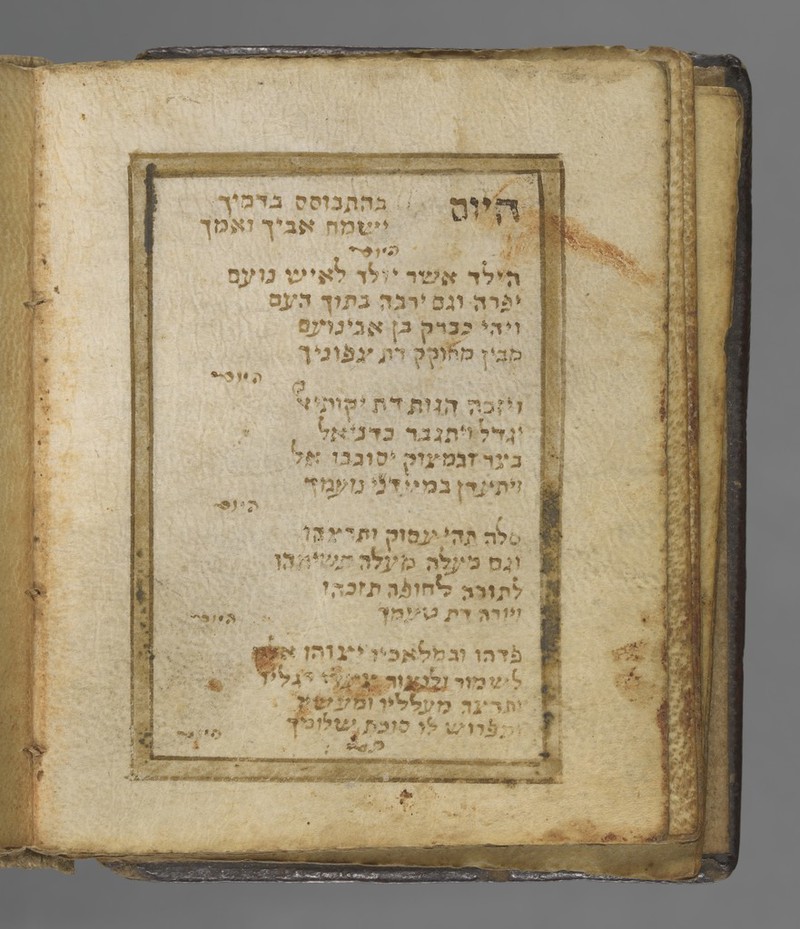 היום בהתבוסס בדמיך
ישמח אביך ואמך
היום
הילד אשר יולד לאיש נועם
יפרה וגם ירבה בתוך העם
ויהי כברק בן אבינועם
מבין מחוקק דת צפוניך
היום
ויזכה הגות דת יקותיאל
יגדל ויתגבר כדניאל
בצר ובמצוק יסובבו אל
ויתעדן נועמך
היום
סלה תהי עסוק ותרצהו
וגם מעלה מעלה תשימהו
לתורה לחופה תזכהו
ויורה דת טעמך
היום
פדהו ובמלאכיו יצוהו
לשמור ולנצור רגליו
ותרצה מעלליו
ותפרוש לי סוכת שלומיך
היום